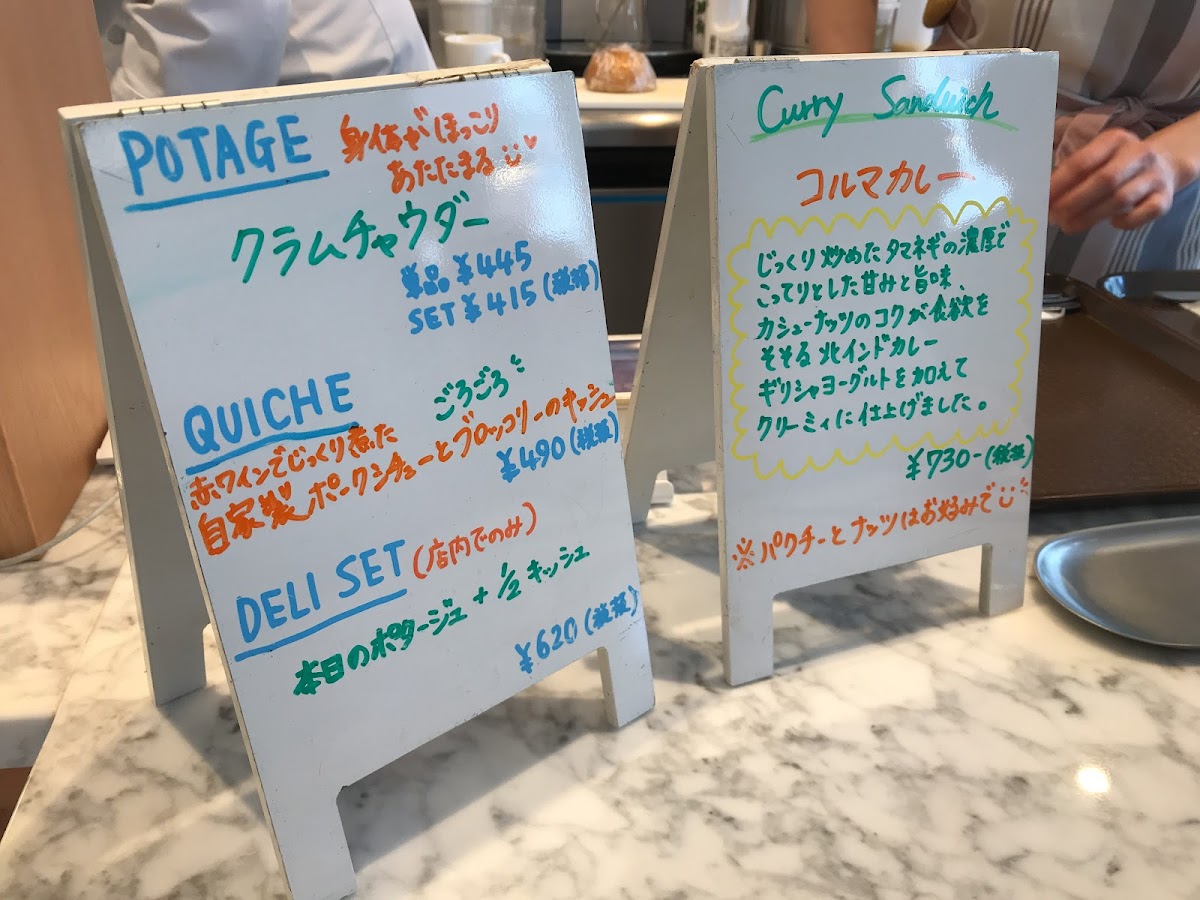 POTAGE
身体がほっこり
あたたまる
クラムチャウダー
単品 ¥445
SET ¥415 (税抜)
QUICHE
ごろごろ
赤ワインでじっくり煮た
自家製 ポークシチューとブロッコリーのキッシュ
¥490 (税抜)
DELI SET (店内でのみ)
本日のポタージュ + 1/2 キッシュ
¥620 (税抜)
Curry Sandwich
コルマカレー
じっくり炒めたタマネギの濃厚で
こってりとした甘みと旨味、
カシューナッツのコクが食欲を
そそる 北インドカレー
ギリシャヨーグルトを加えて
クリーミィに仕上げました。
¥730-(税抜)
※パクチーとナッツはお好みで